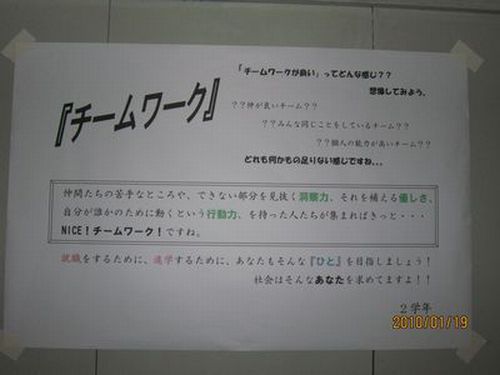 『チームワーク』
「チームワークが良い」ってどんな感じ？？
想像してみよう。
？？仲が良いチーム？？
？？みんな同じことをしているチーム？？
？？個人の能力が高いチーム？？
どれも何かもの足りない感じですね。。。
仲間たちの苦手なところや、できない部分を見抜く洞察力、それを補える優しさ、
自分が誰かのために動くという行動力、を持った人たちが集まればきっと・・・
NICE！チームワーク！ですね。
就職をするために、進学するために、あなたもそんな『ひと』を目指しましょう！
社会はそんなあなたを求めてますよ！！
２学年
2010/01/19